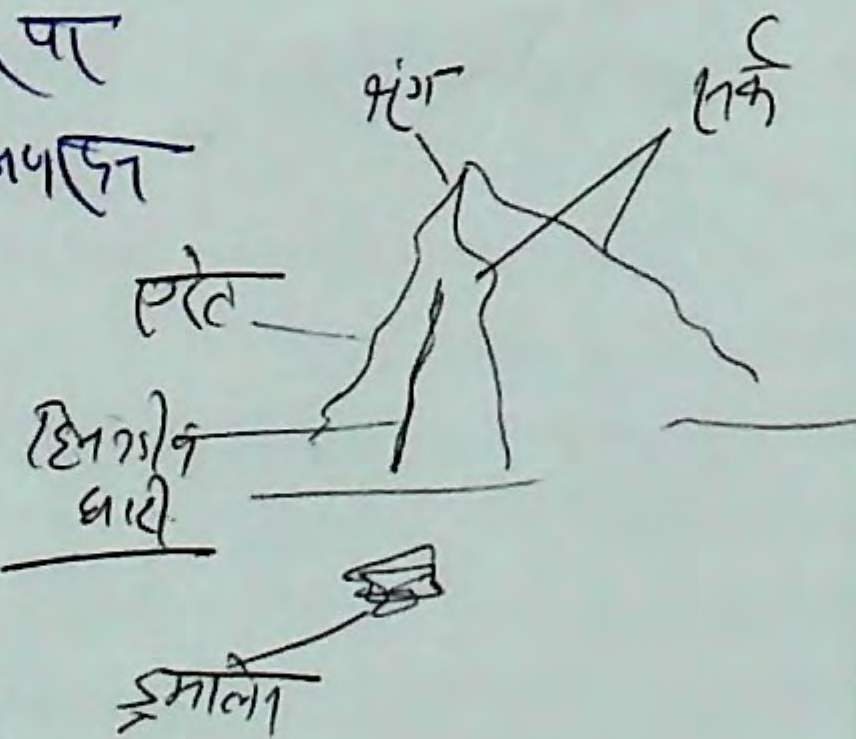 पर
श्रृंग
सर्क
एरेट
हिमनदीय
घाटी
ड्रमलिन